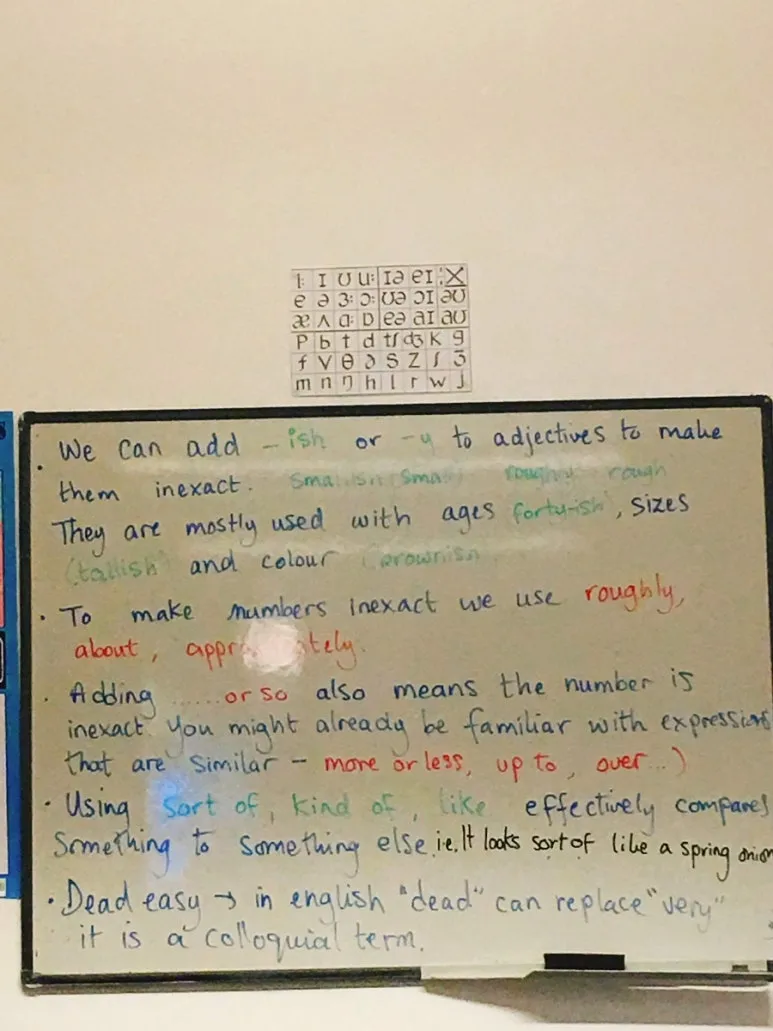 i: ɪ ʊ u: ɪə eɪ
e ə ɜ: ɔ: ʊə ɔɪ əʊ
æ ʌ ɑ: ɒ eə aɪ aʊ
p b t d tʃ dʒ k g
f v θ ð s z ʃ ʒ
m n ŋ h l r w j
• We can add -ish or -y to adjectives to make
them inexact. Smallish Small roughly rough
They are mostly used with ages forty-ish, sizes
(tallish) and colour (brownish
• To make numbers inexact we use roughly,
about,
• Adding ......or so also means the number is
inexact You might already be familiar with expressions
that are similar - more or less, up to, over...)
• Using Sort of, kind of, like effectively compares
Something to something else i.e. It looks sort of like a spring onion
• Dead easy → in english "dead" can replace "very"
it is a colloquial term.